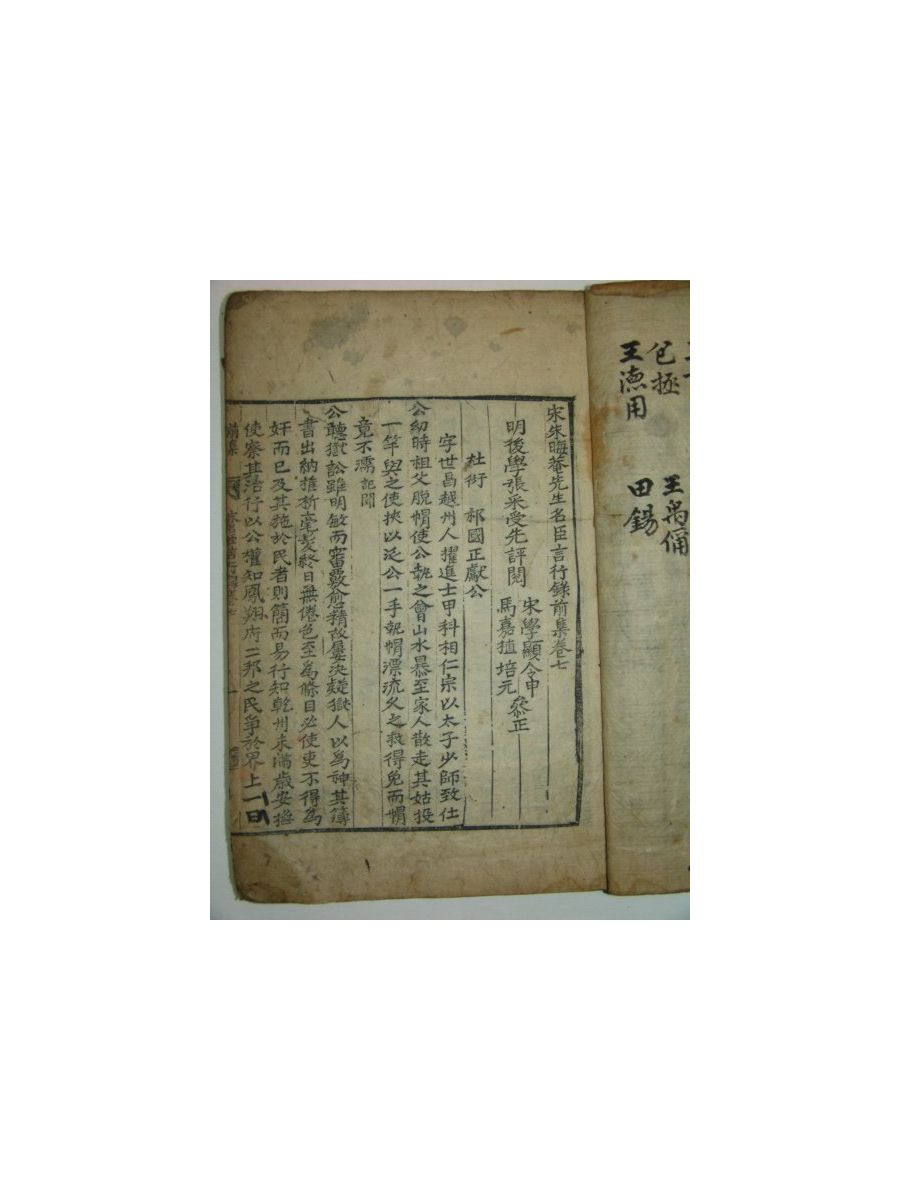 包拯 王禹偁
王德用 田錫
宋朱晦菴先生名臣言行錄前集卷七
明後學張采受先評閱 宋學顯令申 參正
馬嘉植培元
杜衍 祁國正獻公
字世昌越州人擢進士甲科相仁宗以太子少師致仕
公幼時祖父脫帽使公執之會山水暴至家人散走其姑投
一竿與之使挾以泛公一手執帽漂流久之救得免而帽
竟不濡記聞
公聽獄訟雖明敏而審覈愈精故屢決疑獄人以為神其簿
書出納推析毫髮終日無倦色至為條目必使吏不得為
奸而已及其施於民者則簡而易行知乾州未滿歲安撫
使察其治行以公權知鳳翔府二邦之民爭於界上一曰
前集